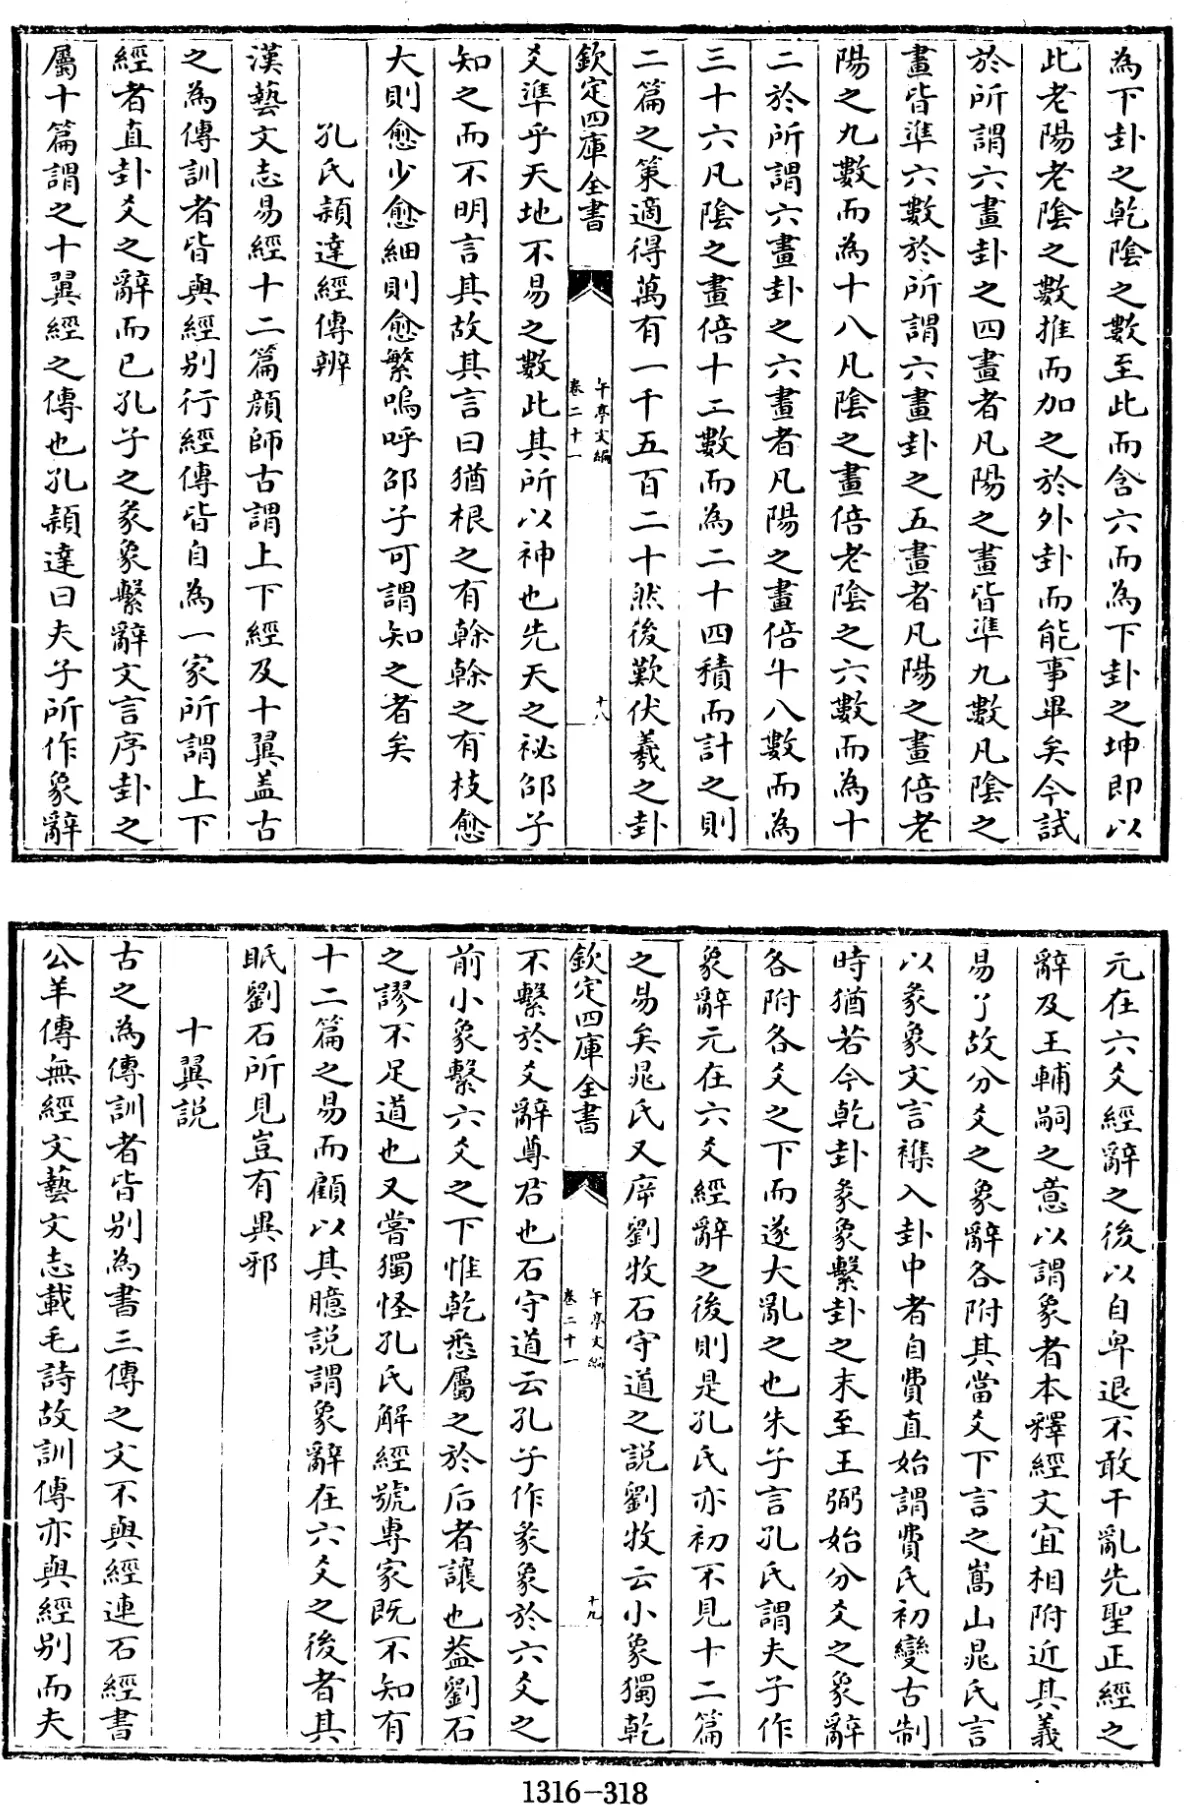 為下卦之乾陰之數至此而含六而為下卦之坤即以
此老陽老陰之數推而加之於外卦而能事畢矣今試
於所謂六畫卦之四畫者凡陽之畫皆準九數凡陰之
畫皆準六數於所謂六畫卦之五畫者凡陽之畫倍老
陽之九數而為十八凡陰之畫倍老陰之六數而為十
二於所謂六畫卦之六畫者凡陽之畫倍十八數而為
三十六凡陰之畫倍十二數而為二十四積而計之則
二篇之策適得萬有一千五百二十然後歎伏羲之卦
欽定四庫全書
午亭文編
卷二十一
十八
爻準乎天地不易之數此其所以神也先天之祕邵子
知之而不明言其故其言曰猶根之有榦榦之有枝愈
大則愈少愈細則愈繁嗚呼邵子可謂知之者矣
孔氏穎達經傳辨
漢藝文志易經十二篇顔師古謂上下經及十翼蓋古
之為傳訓者皆與經別行經傳皆自為一家所謂上下
經者直卦爻之辭而已孔子之彖象繫辭文言序卦之
屬十篇謂之十翼經之傳也孔穎達曰夫子所作象辭
元在六爻經辭之後以自卑退不敢干亂先聖正經之
辭及王輔嗣之意以謂象者本釋經文宜相附近其義
易了故分爻之象辭各附其當爻下言之嵩山晁氏言
以彖象文言襍入卦中者自費直始謂費氏初變古制
時猶若今乾卦彖象繫卦之末至王弼始分爻之象辭
各附各爻之下而遂大亂之也朱子言孔氏謂夫子作
象辭元在六爻經辭之後則是孔氏亦初不見十二篇
之易矣晁氏又序劉牧石守道之說劉牧云小象獨乾
欽定四庫全書
午亭文編
卷二十一
十九
不繫於爻辭尊君也石守道云孔子作彖象於六爻之
前小象繫六爻之下惟乾悉屬之於后者讓也蓋劉石
之謬不足道也又嘗獨怪孔氏解經號專家既不知有
十二篇之易而顧以其臆說謂象辭在六爻之後者其
眂劉石所見豈有異邪
十翼說
古之為傳訓者皆別為書三傳之文不與經連石經書
公羊傳無經文藝文志載毛詩故訓傳亦與經別而夫
1316-318